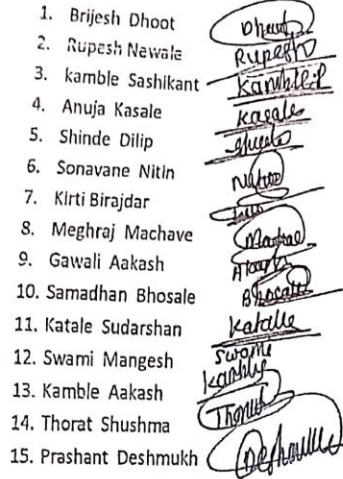 1. Brijesh Dhoot Dhoot
2. Rupesh Newale Rupesh
3. kamble Sashikant Kamble
4. Anuja Kasale Kasale
5. Shinde Dilip
6. Sonavane Nitin
7. Kirti Birajdar
8. Meghraj Machave
9. Gawali Aakash Akash
10. Samadhan Bhosale Bhosale
11. Katale Sudarshan Katalle
12. Swami Mangesh Swami
13. Kamble Aakash Kamble
14. Thorat Shushma Thorat
15. Prashant Deshmukh Deshmukh